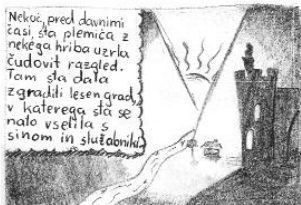 Nekoč, pred davnimi
časi, sta plemiča z
nekega hriba uzrla
čudovit razgled.
Tam sta dala
zgraditi lesen grad,
v katerega sta se
nato vselila s
sinom in služabniki.